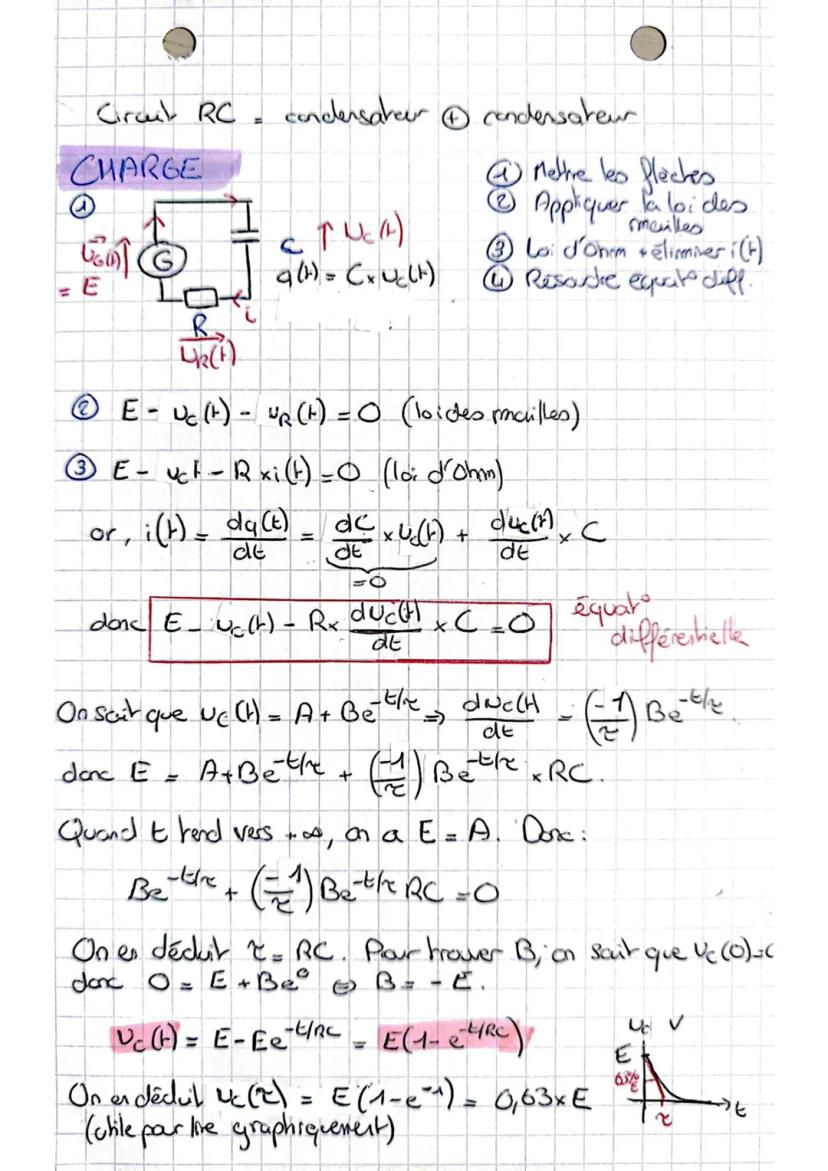 Circuit RC = condensateur ⊕ condensateur
CHARGE
① Mettre les flèches
② Appliquer la loi des mailles
③ Loi d'Ohm + éliminer i(t)
④ Résoudre équat° diff.
①
U_G(t)
= E
G
C
U_C(t)
q(t) = C × u_C(t)
i
R
U_R(t)
② E - u_C(t) - u_R(t) = 0 (loi des mailles)
③ E - u_C t - R × i(t) = 0 (loi d'Ohm)
or, i(t) = dq(t)/dt = dC/dt × U_C(t) + du_C(t)/dt × C
=0
donc E - u_C(t) - R × dU_C(t)/dt × C = 0
équat°
différentielle
On sait que u_C(t) = A + Be^-t/τ ⇒ du_C(t)/dt = (-1/τ) Be^-t/τ.
donc E = A + Be^-t/τ + (-1/τ) Be^-t/τ × RC.
Quand t tend vers +∞, on a E = A. Donc :
Be^-t/τ + (-1/τ) Be^-t/τ RC = 0
On en déduit τ = RC. Pour trouver B, on sait que U_C(0)=0
donc 0 = E + Be^0 ⇔ B = - E.
U_C(t) = E - Ee^-t/RC = E(1 - e^-t/RC)
On en déduit u_C(τ) = E(1-e^-1) = 0,63 × E
(utile pour lire graphiquement)
U_C V
E
63%E
τ
t